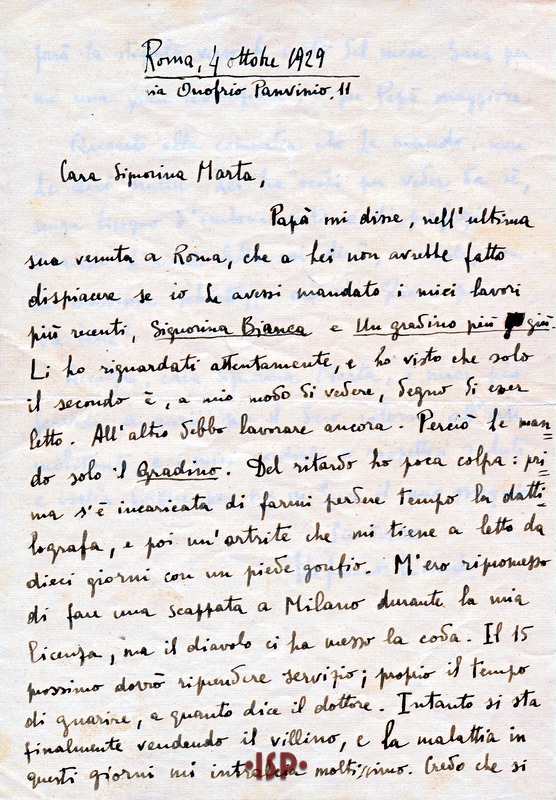 Roma, 4 ottobre 1929
via Onofrio Panvinio, 11
Cara Signorina Marta,
Papà mi disse, nell'ultima
sua venuta a Roma, che a Lei non avrebbe fatto
dispiacere se io Le avessi mandato i miei lavori
più recenti, Signorina Bianca e Un gradino più giù.
Li ho riguardati attentamente, e ho visto che solo
il secondo è, a mio modo di vedere, degno di esser
letto. All'altro debbo lavorare ancora. Perciò le man-
do solo il Gradino. Del ritardo ho poca colpa: pri-
ma s'è incaricata di farmi perdere tempo la datti-
lografa, e poi un'artrite che mi tiene a letto da
dieci giorni con un piede gonfio. M'ero ripromesso
di fare una scappata a Milano durante la mia
licenza, ma il diavolo ci ha messo la coda. Il 15
prossimo dovrò riprendere servizio; proprio il tempo
di guarire, a quanto dice il dottore. Intanto si sta
finalmente vendendo il villino, e la malattia in
questi giorni mi intralcia moltissimo. Credo che si
•ISP•